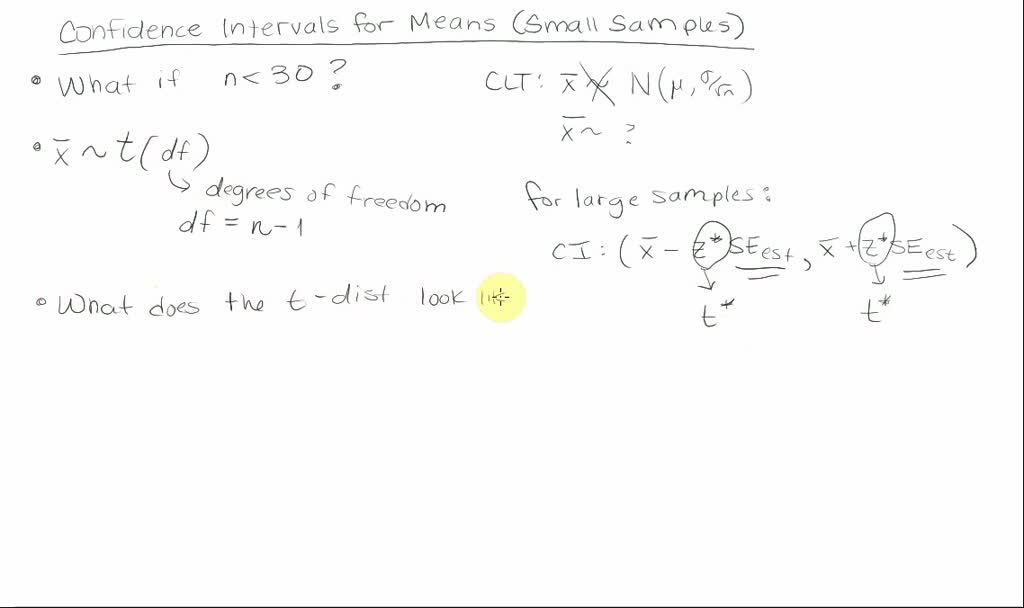 Confidence Intervals for Means (Small Samples)
• What if n < 30 ?
CLT: x̄ ~ N(μ, σ/√n)
x̄ ~ ?
• x̄ ~ t(df)
↳ degrees of freedom
df = n - 1
for large samples:
CI: (x̄ - z* SEest, x̄ + z* SEest)
t* t*
• What does the t-dist look